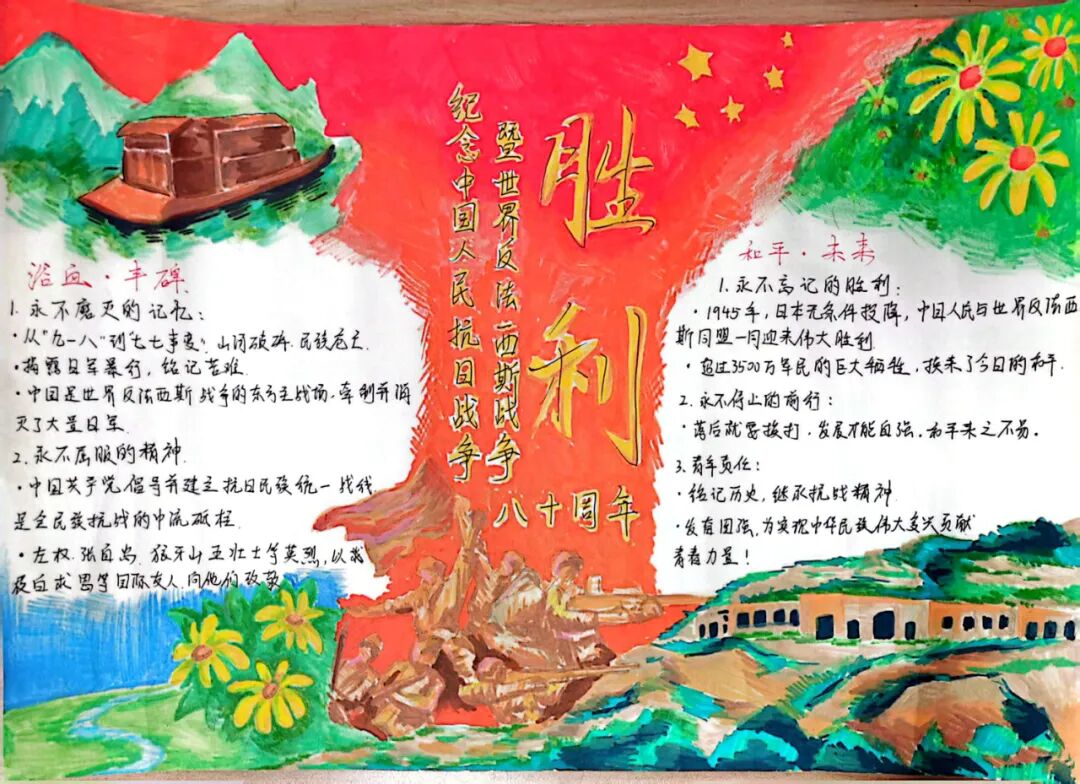 纪念中国人民抗日战争
暨世界反法西斯战争
胜利
八十周年
浴血·丰碑
1. 永不磨灭的记忆:
·从"九一八"到"七七事变",山河破碎.民族危亡.
·揭露日军暴行,铭记苦难.
·中国是世界反法西斯战争的东方主战场.牵制并消
灭了大量日军.
2. 永不屈服的精神.
·中国共产党倡导并建立抗日民族统一战线
是全民族抗战的中流砥柱.
·左权.张自忠.狼牙山五壮士等英烈,以
及白求恩等国际友人.向他们致敬
和平·未来
1. 永不忘记的胜利:
·1945年,日本无条件投降,中国人民与世界反法西
斯同盟一同迎来伟大胜利
·超过3500万军民的巨大牺牲,换来了今日的和平.
2. 永不停止的前行:
·落后就要挨打,发展才能自强.和平来之不易。
3. 青年责任:
·铭记历史,继承抗战精神.
·发奋图强,为实现中华民族伟大复兴贡献
青春力量!